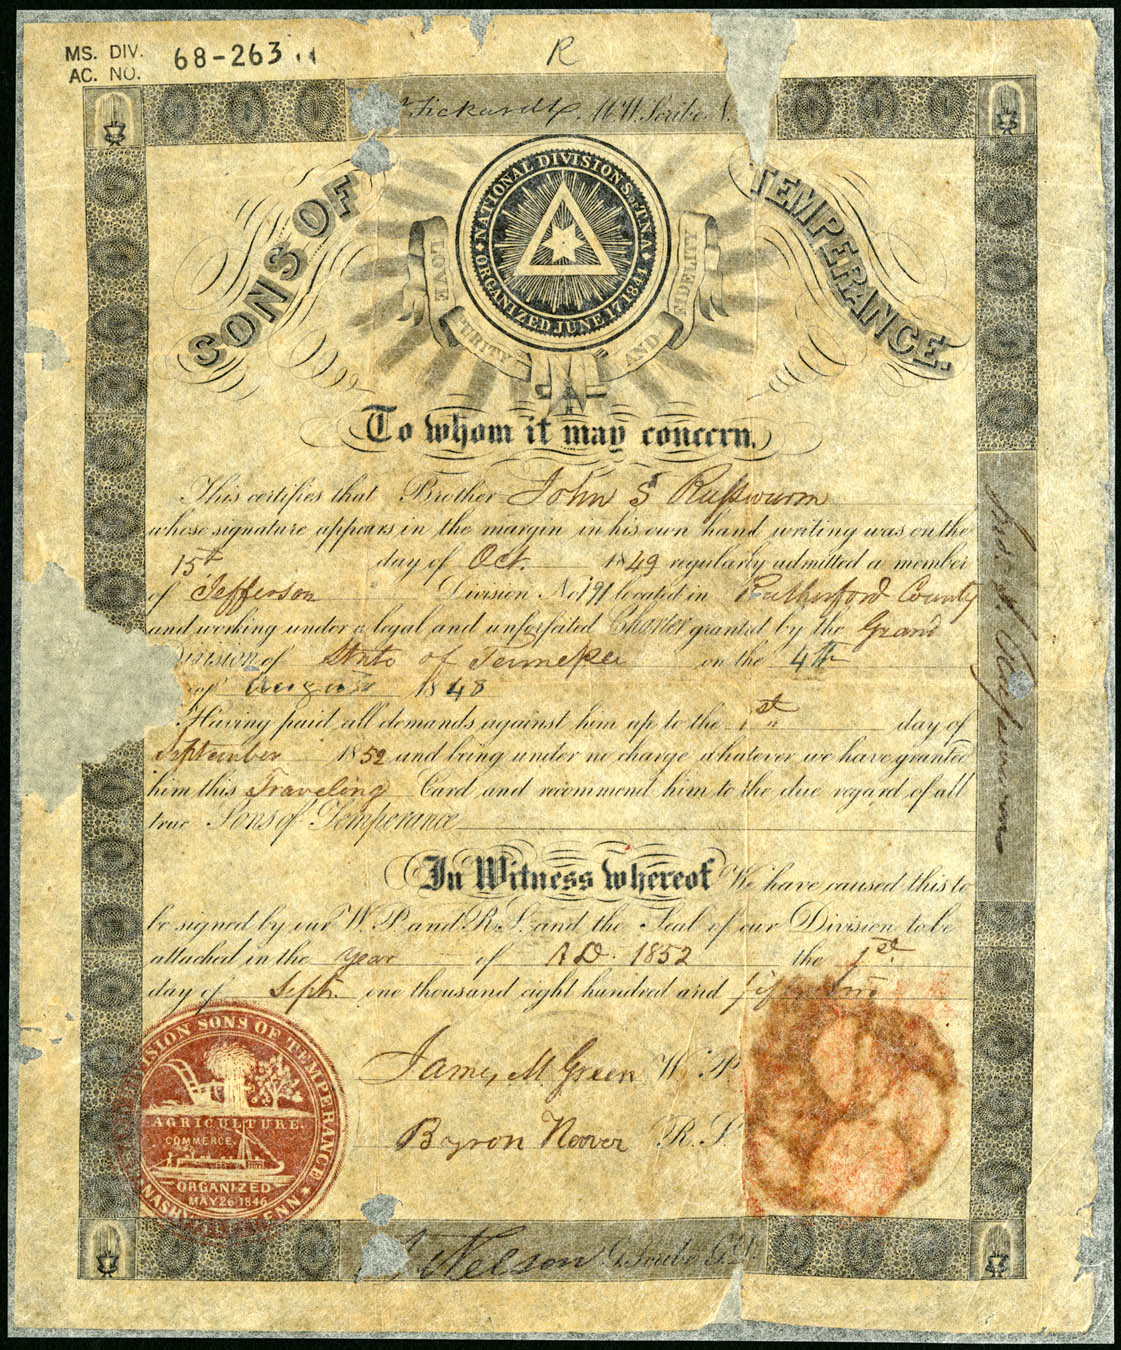 MS. DIV.
AC. NO. 68-263
R
Fickardt, M. W. Scribe N.
SONS OF TEMPERANCE.
NATIONAL DIVISION S. of T. N.A.
ORGANIZED JUNE 17, 1844
LOVE PURITY AND FIDELITY
To whom it may concern.
This certifies that Brother John S Russwurm
whose signature appears in the margin in his own hand writing was on the
15th day of Oct. 1849 regularly admitted a member
of Jefferson Division No 191 located in Rutherford County
and working under a legal and unforfated Charter granted by the Grand
Division of State of Tennessee on the 4th
of August 1848
Having paid all demands against him up to the 1st day of
September 1852 and being under no charge whatever we have granted
him this Traveling Card and recommend him to the due regard of all
true Sons of Temperance
In Witness whereof We have caused this to
be signed by our W. P. and R. S. and the Seal of our Division to be
attached in the year of A.D. 1852 the 1st
day of Sept. one thousand eight hundred and fifty two
James M Green W. P.
Byron Noover R. S.
DIVISION SONS OF TEMPERANCE
AGRICULTURE.
COMMERCE.
ORGANIZED
MAY 26 1846
NASHVILLE TENN
Nelson G. Scribe G. D.
Jno S. Russwurm